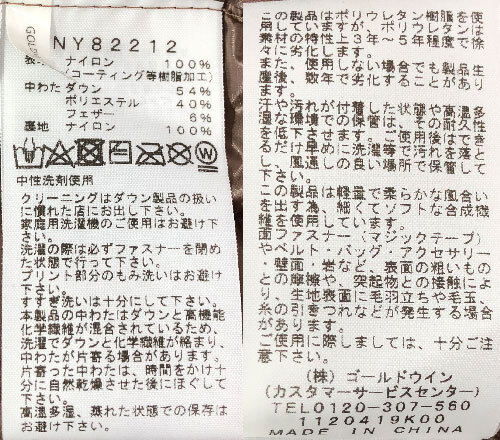 NY82212
表地 ナイロン 100%
(コーティング等樹脂加工)
中わた ダウン 54%
ポリエステル 40%
フェザー 6%
裏地 ナイロン 100%
中性洗剤使用
クリーニングはダウン製品の扱い
に慣れた店にお出し下さい。
家庭用洗濯機のご使用はお避け下
さい。
洗濯の際は必ずファスナーを閉め
た状態で行って下さい。
プリント部分のもみ洗いはお避け
下さい。
すすぎ洗いは十分にして下さい。
本製品の中わたはダウンと高機能
化学繊維が混合されているため、
洗濯でダウンと化学繊維が絡まり、
中わたが片寄る場合があります。
片寄った中わたは、時間をかけ十
分に自然乾燥させた後にほぐして
下さい。
高温多湿、蒸れた状態での保存は
お避け下さい。
この製品はポリウレタン樹脂を使
用していますが、ポリウレタンは
素材の特性上3年～5年程度で徐
々に劣化します。
また、使用しない場合でも製品生
産後、数年で劣化することがあり
ます。
汗や汚れが付着した状態や高温多
湿な環境での保管は、その耐久性
を低下させます。ご使用後はでき
るだけ早めに洗濯等で汚れを落と
し、風通しの良い場所で保管して
下さい。
この製品は軽量で柔らかな風合い
を出す為、細くてソフトな合成繊
維を使用しています。
面ファスナー(マジックテープ)
やベルト・バッグ・アクセサリー
・壁面・岩など、表面の粗いもの
との摩擦や、突起物との接触によ
り、生地表面に毛羽立ちや毛玉、
糸の引きつれなどが発生する場合
があります。
ご使用に際しましては、十分ご注
意下さい。
(株) ゴールドウイン
(カスタマーサービスセンター)
TEL0120-307-560
1120419K00
MADE IN CHINA